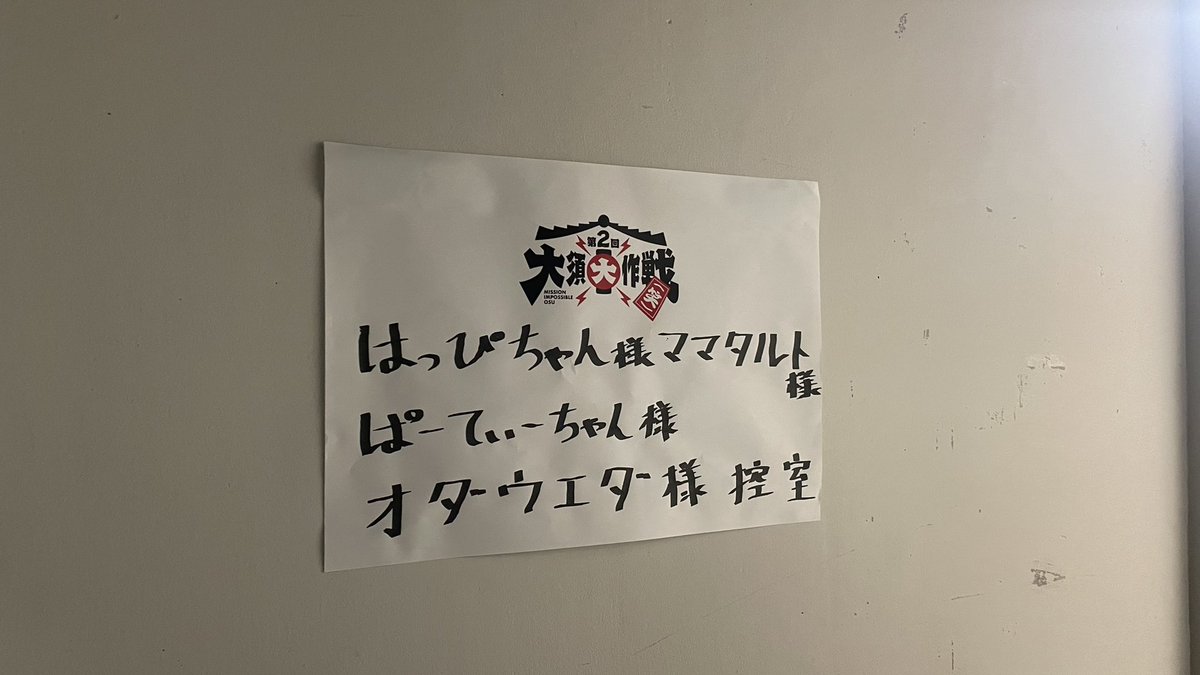 第2回
大須大作戦
(笑)
MISSION
IMPOSSIBLE
OSU
はっぴちゃん様ママタルト
様
ぱーてぃーちゃん様
オターウエター様 控室